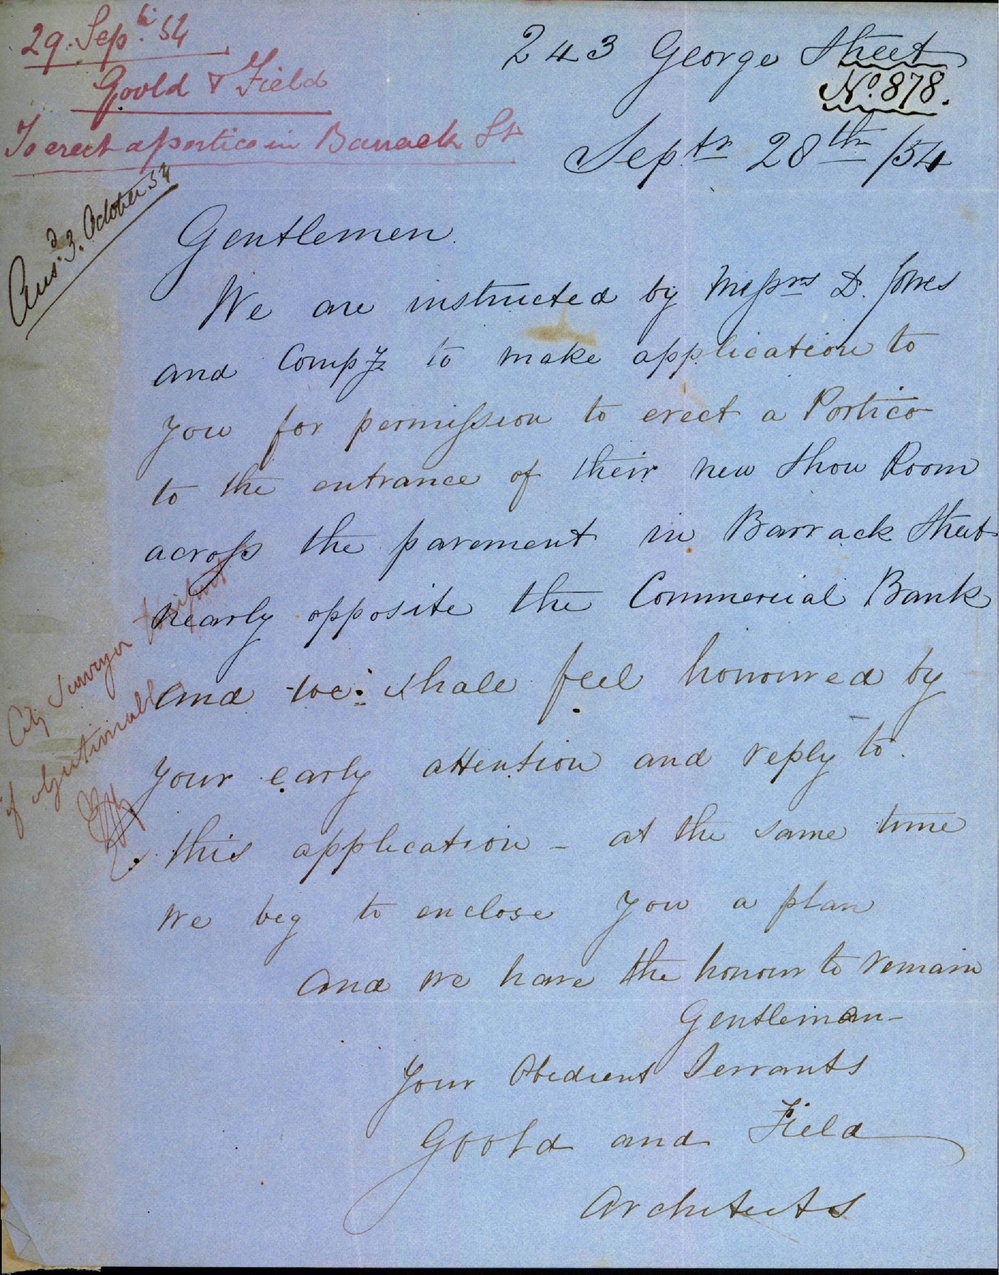 29. Septr. 54
Goold & Field
To erect a portico in Barrack St
Ansd. 3. October 54
243 George Street
No. 878.
Septr 28th /54
Gentlemen.
We are instructed by Messrs D. Jones
and Compy to make application to
you for permission to erect a Portico
to the entrance of their new Show Room
across the pavement in Barrack Street
nearly opposite the Commercial Bank
and we shall feel honoured by
your early attention and reply to
this application – at the same time
we beg to enclose you a plan
and we have the honour to remain
Gentlemen –
Your Obedient Servants
Goold and Field
Architects
City Surveyor
if